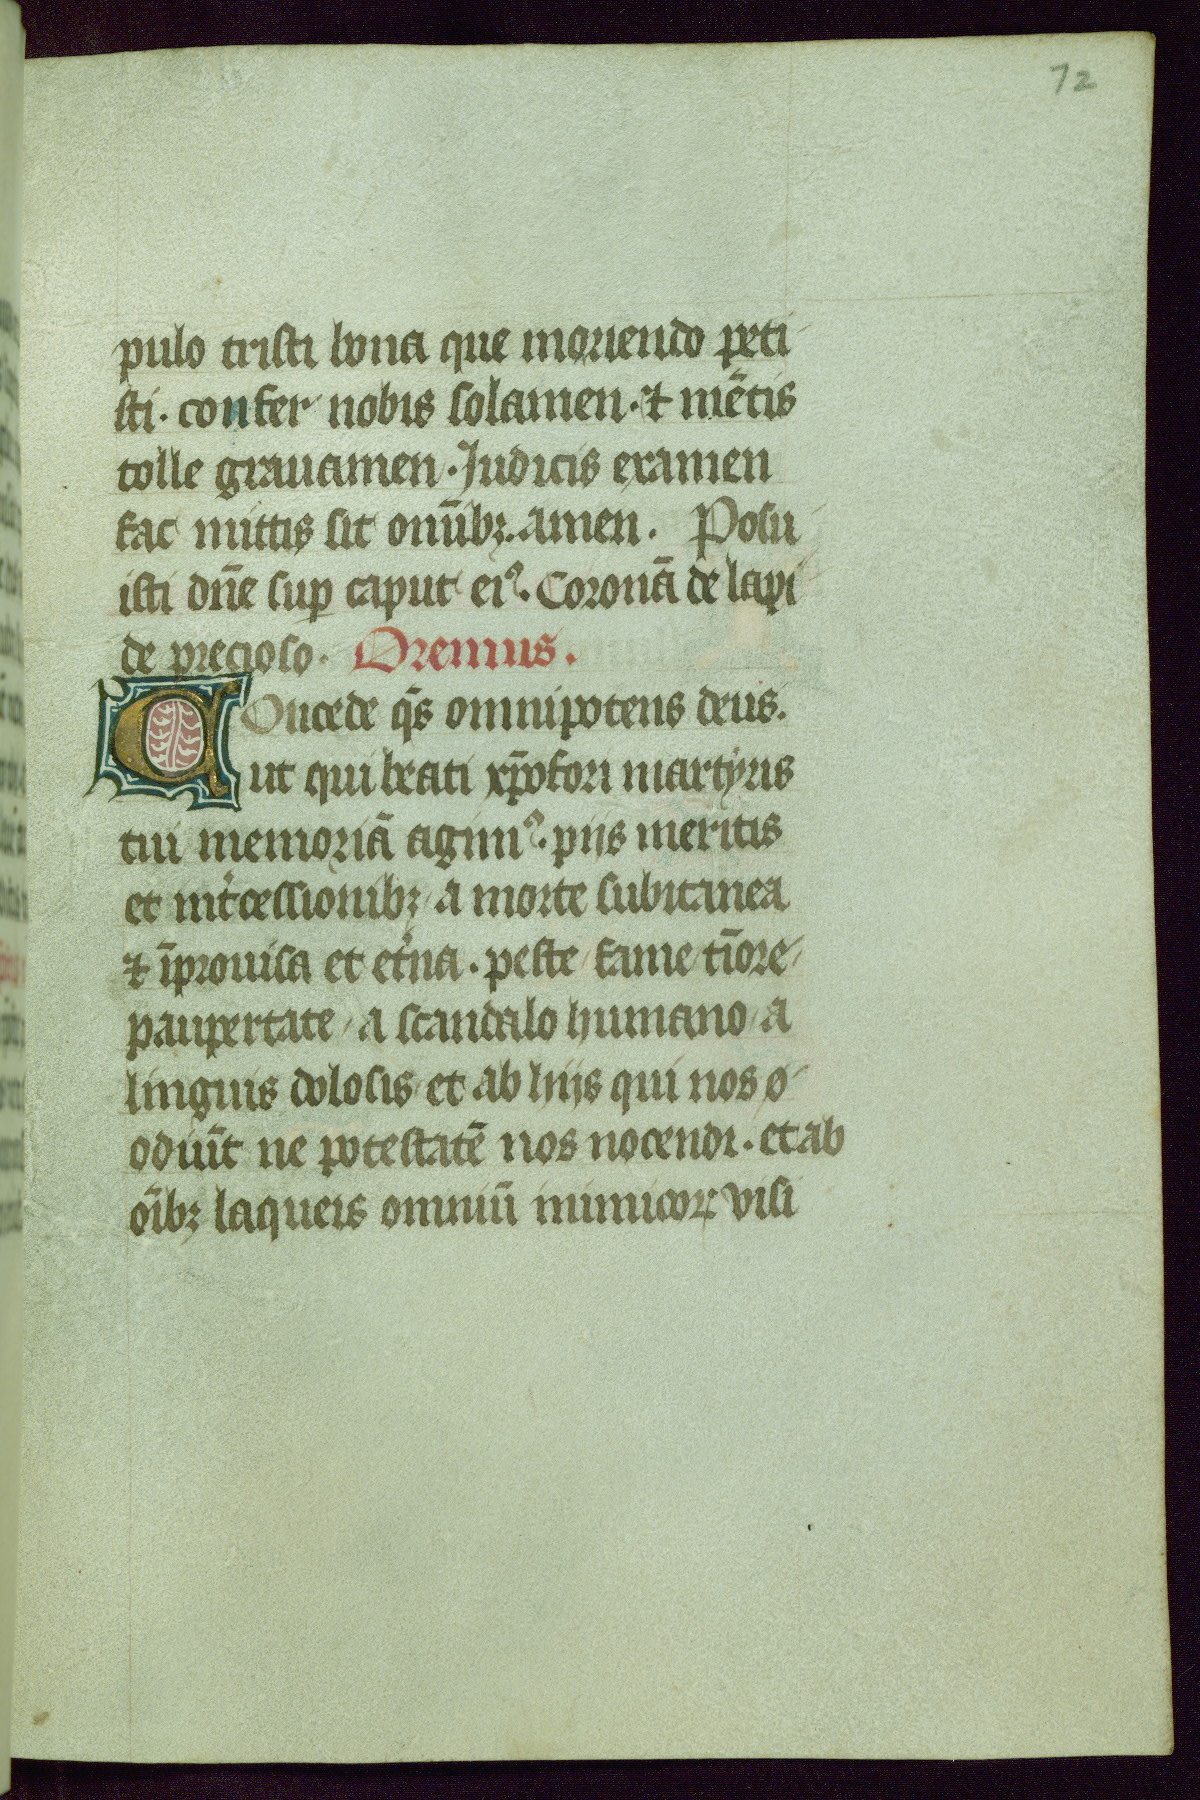 72
pulo tristi bona que moriendo peti
sti. confer nobis solamen. ⁊ mẽtis
tolle grauamen. Judicis examen
fac mittis sit om̃ibꝫ. amen. Posu
isti dñe suꝑ caput eiꝰ. Coronã de lapi
de precioso. Oremus.
Concede q̃s omnipotens deus.
ut qui beati xp̃ofori martyris
tui memoriã agimꝰ. pijs meritis
et int̾cessionibꝫ / a morte subitanea
⁊ ĩprouisa et et̾na. peste / fame / tĩore /
pauꝑtate / a scandalo humano / a
linguis dolosis / et ab hijs qui nos o
odiũt ne potestatẽ nos nocendi. et ab
oĩbꝫ laqueis omniũ inimicoꝝ visi